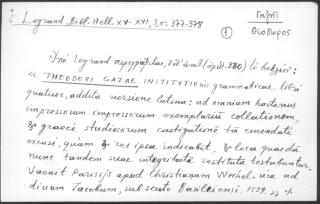 Legrand, Bibl. Hell. XV-XVI, 3, σ. 377-378
1
Γαζῆ
Θεόδωρος
Legrand
« THEODORI GAZAE INSTITUTIONIS grammaticae libri
quatuor, addita versione latina: ad omnium hactenus
impressorum impressorum exemplarium collationem,
& graece studiosorum castigatione tā emendatè
excusi, quàm & res ipsa indicabit, & loca quaedā
nunc tandem suae integritati restituta testabuntur.
Vaenit Parisijs apud Christianum Wechel. via ad
divum Jacobum, sub scuto Basileensi. 1539.